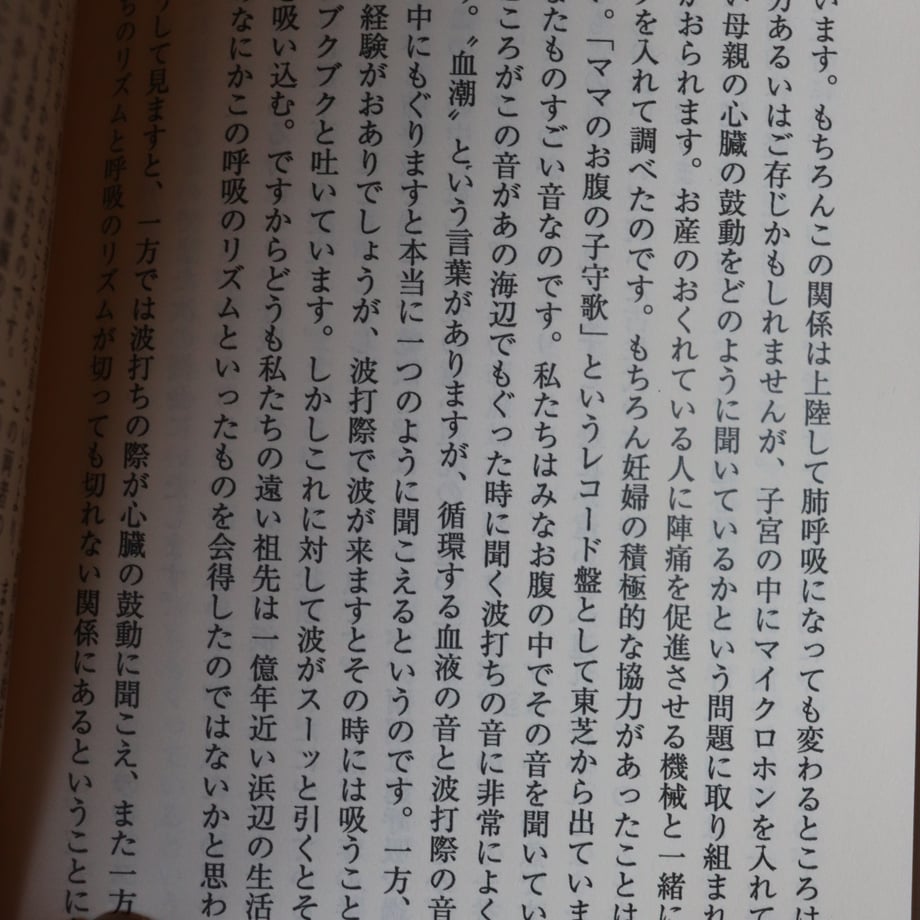 います。もちろんこの関係は上陸して肺呼吸になっても変わるところは
方あるいはご存じかもしれませんが、子宮の中にマイクロホンを入れて
い母親の心臓の鼓動をどのように聞いているかという問題に取り組まれ
がおられます。お産のおくれている人に陣痛を促進させる機械と一緒に
を入れて調べたのです。もちろん妊婦の積極的な協力があったことは
。「ママのお腹の子守歌」というレコード盤として東芝から出ていま
たものすごい音なのです。私たちはみなお腹の中でその音を聞いてい
ころがこの音があの海辺でもぐった時に聞く波打ちの音に非常によく
す。〝血潮〟という言葉がありますが、循環する血液の音と波打際の音
中にもぐりますと本当に一つのように聞こえるというのです。一方、
経験がおありでしょうが、波打際で波が来ますとその時には吸うこと
ブクブクと吐いています。しかしこれに対して波がスーッと引くとそ
吸い込む。ですからどうも私たちの遠い祖先は一億年近い浜辺の生活
なにかこの呼吸のリズムといったものを会得したのではないかと思わ
して見ますと、一方では波打ちの際が心臓の鼓動に聞こえ、また一方
ちのリズムと呼吸のリズムが切っても切れない関係にあるということに